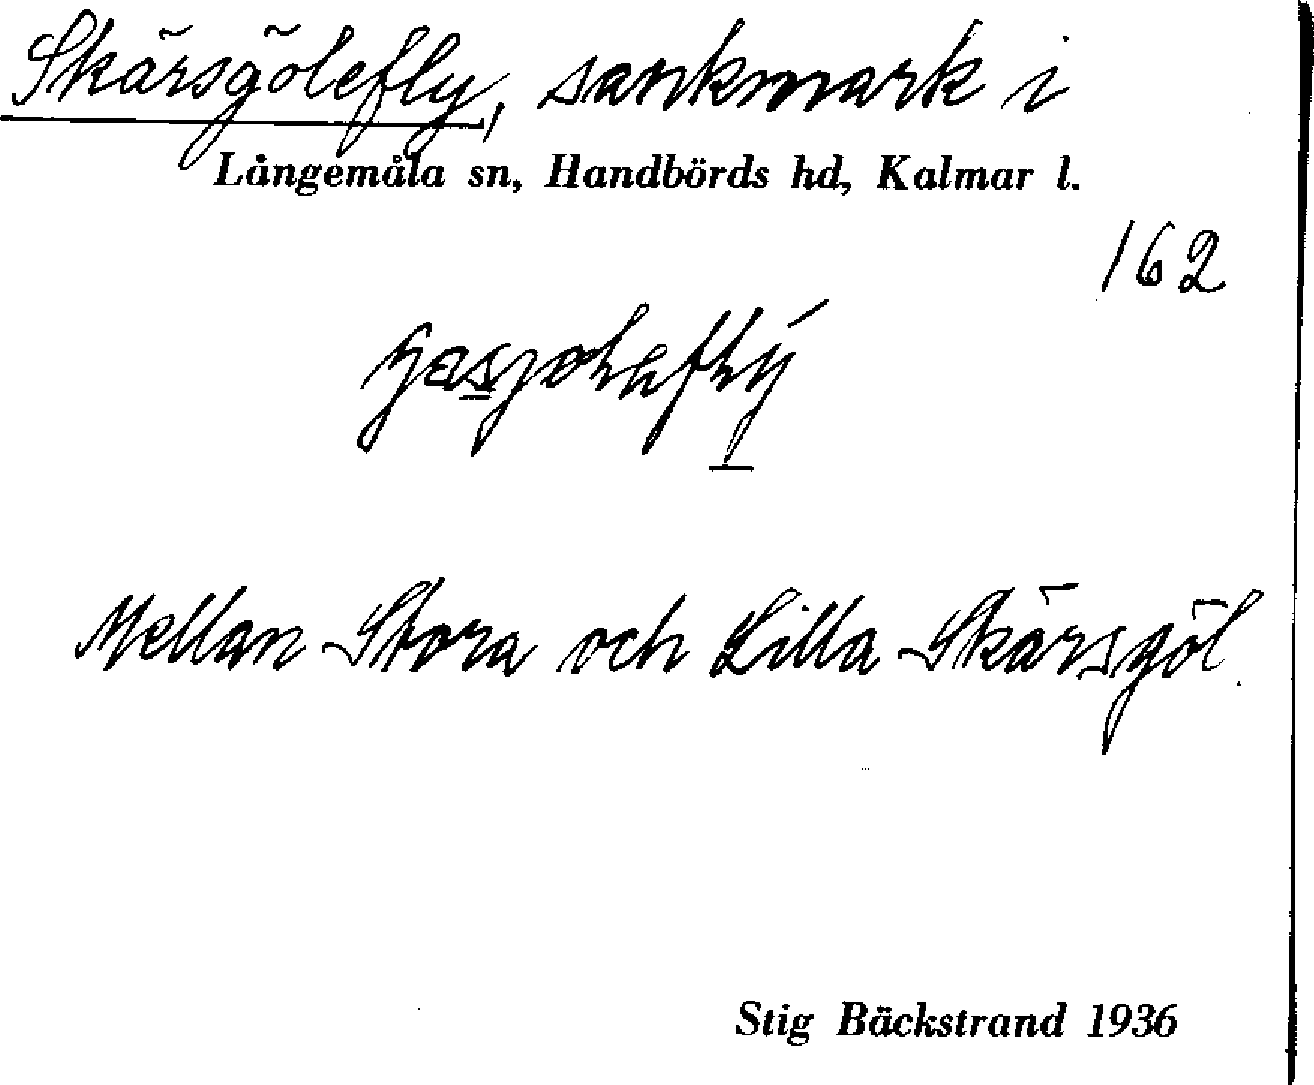 Skärsgölefly, sankmark i
Långemåla sn, Handbörds hd, Kalmar l.
162
Mellan Stora och Lilla Skärsgöl.
Stig Bäckstrand 1936